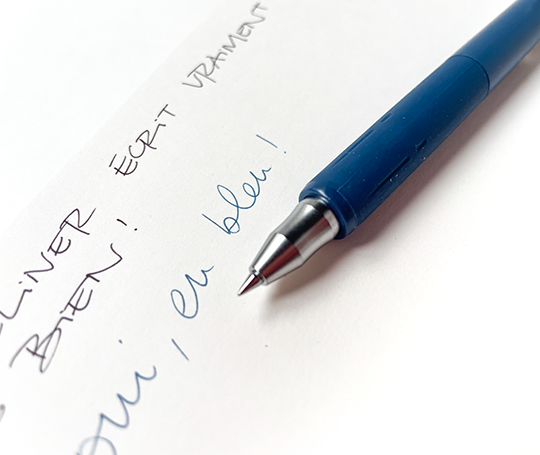 LINER ÉCRIT VRAIMENT
BIEN!
oui, en bleu!